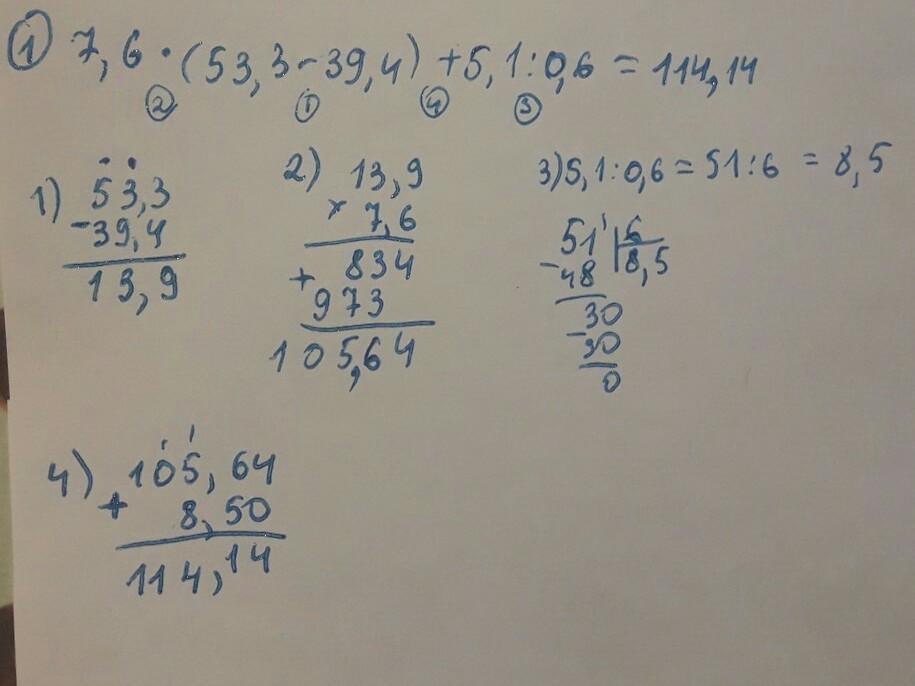 ① 7,6 · (53,3 - 39,4) + 5,1 : 0,6 = 114,14
② ① ④ ③
1) 53,3
- 39,4
13,9
2) 13,9
× 7,6
834
+ 973
105,64
3) 5,1 : 0,6 = 51 : 6 = 8,5
51' | 6
- 48 | 8,5
30
- 30
0
4) 105,64
+ 8,50
114,14